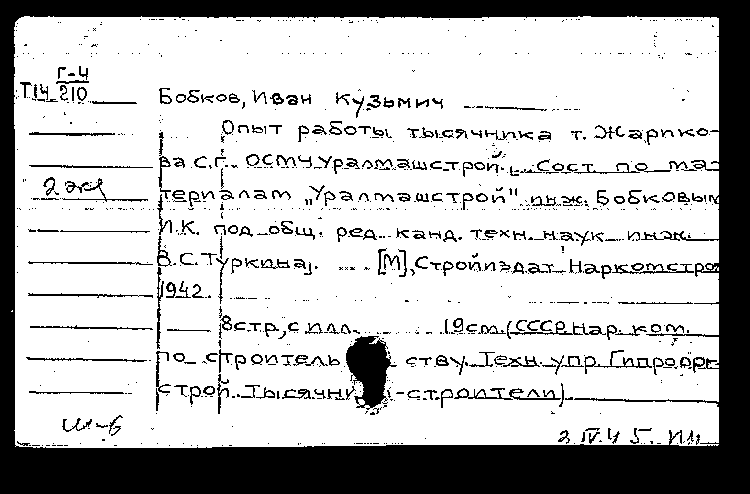 Г-4
Т14 210
Бобков, Иван Кузьмич
Опыт работы тысячника т. Жарико-
ва С.Г. ОСМЧ Уралмашстрой. Сост. по ма-
2 экз
териалам „Уралмашстрой" инж. Бобковым
И.К. под общ. ред. канд. техн. наук инж.
В.С. Туркина]. .... [М], Стройиздат Наркомстро
1942.
8 стр, с илл. 19 см. (СССР Нар. ком.
по строитель ству. Техн. упр. Гипрорг
строй. Тысячни -строители)
Ш-6
2 IV.45.